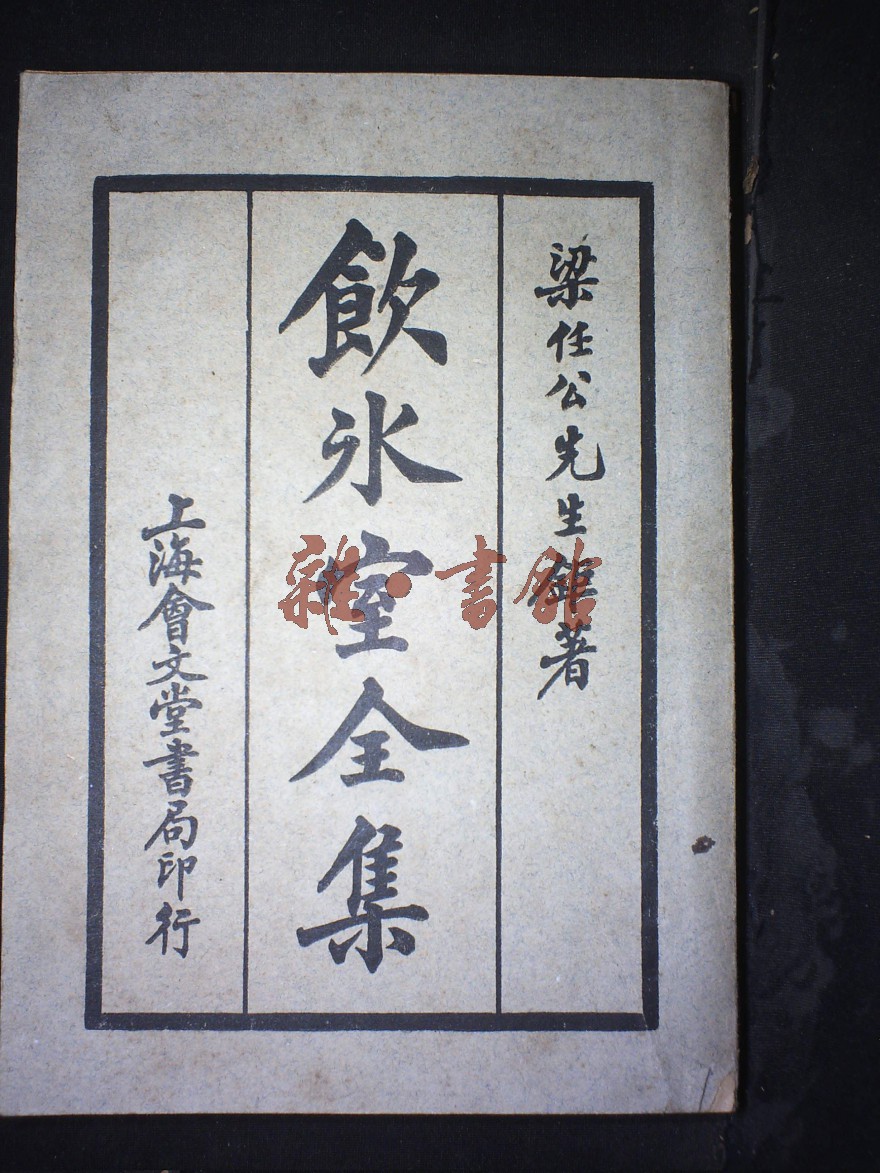 梁任公先生鉅著
飲冰室全集
上海會文堂書局印行
雜·書館